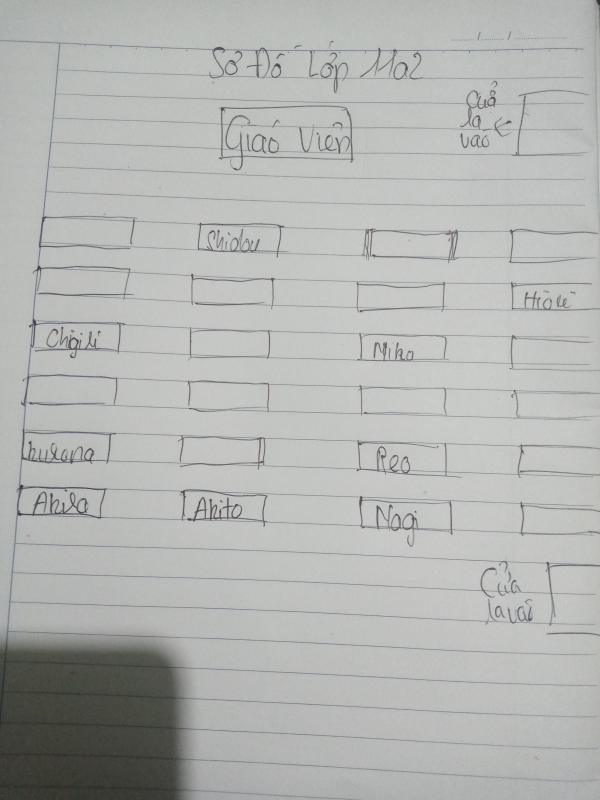 Sơ Đồ Lớp 11a2
Giáo Viên
Cửa
ra
vào
Shidou
Hiori
Chigiri
Niko
kurona
Reo
Akira
Akito
Nagi
Cửa
ra vào